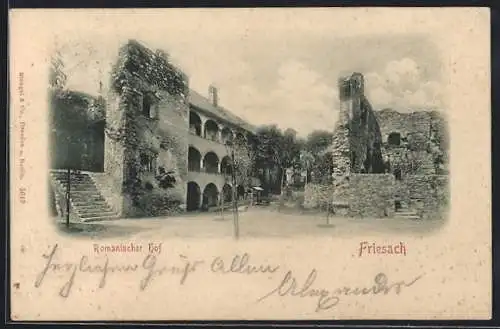 Stengel & Co., Dresden u. Berlin. 5619
Romanischer Hof
Friesach
Herzlichen Gruß Allen
Alexander